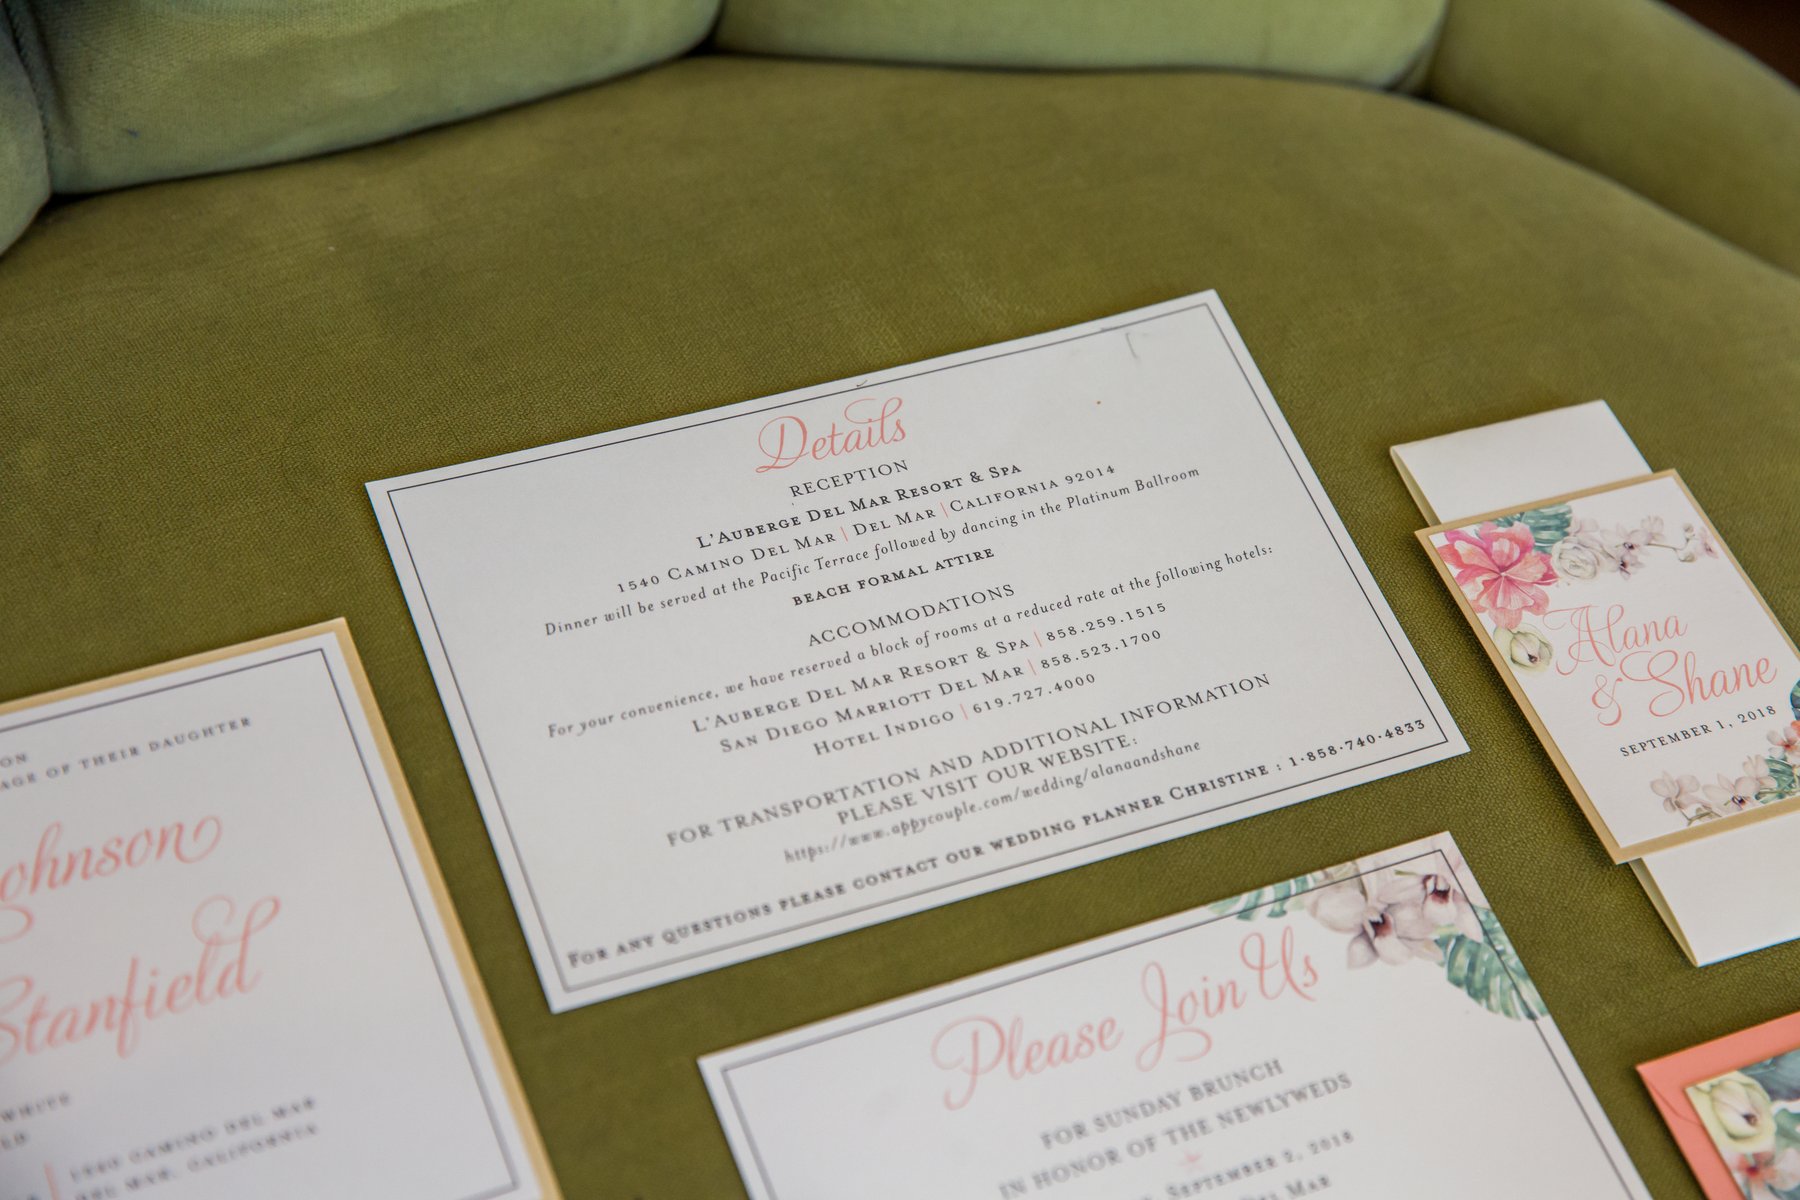 Details
RECEPTION
L'AUBERGE DEL MAR RESORT & SPA
1540 CAMINO DEL MAR | DEL MAR | CALIFORNIA 92014
Dinner will be served at the Pacific Terrace followed by dancing in the Platinum Ballroom
BEACH FORMAL ATTIRE
ACCOMMODATIONS
For your convenience, we have reserved a block of rooms at a reduced rate at the following hotels:
L'AUBERGE DEL MAR RESORT & SPA | 858.259.1515
SAN DIEGO MARRIOTT DEL MAR | 858.523.1700
HOTEL INDIGO | 619.727.4000
FOR TRANSPORTATION AND ADDITIONAL INFORMATION
PLEASE VISIT OUR WEBSITE:
https://www.appycouple.com/wedding/alanaandshane
FOR ANY QUESTIONS PLEASE CONTACT OUR WEDDING PLANNER CHRISTINE : 1-858-740-4833
Alana
& Shane
SEPTEMBER 1, 2018
OF THEIR DAUGHTER
Johnson
Stanfield
WHITE
1540 CAMINO DEL MAR
DEL MAR, CALIFORNIA
Please Join Us
FOR SUNDAY BRUNCH
IN HONOR OF THE NEWLYWEDS
SEPTEMBER 2, 2018
DEL MAR